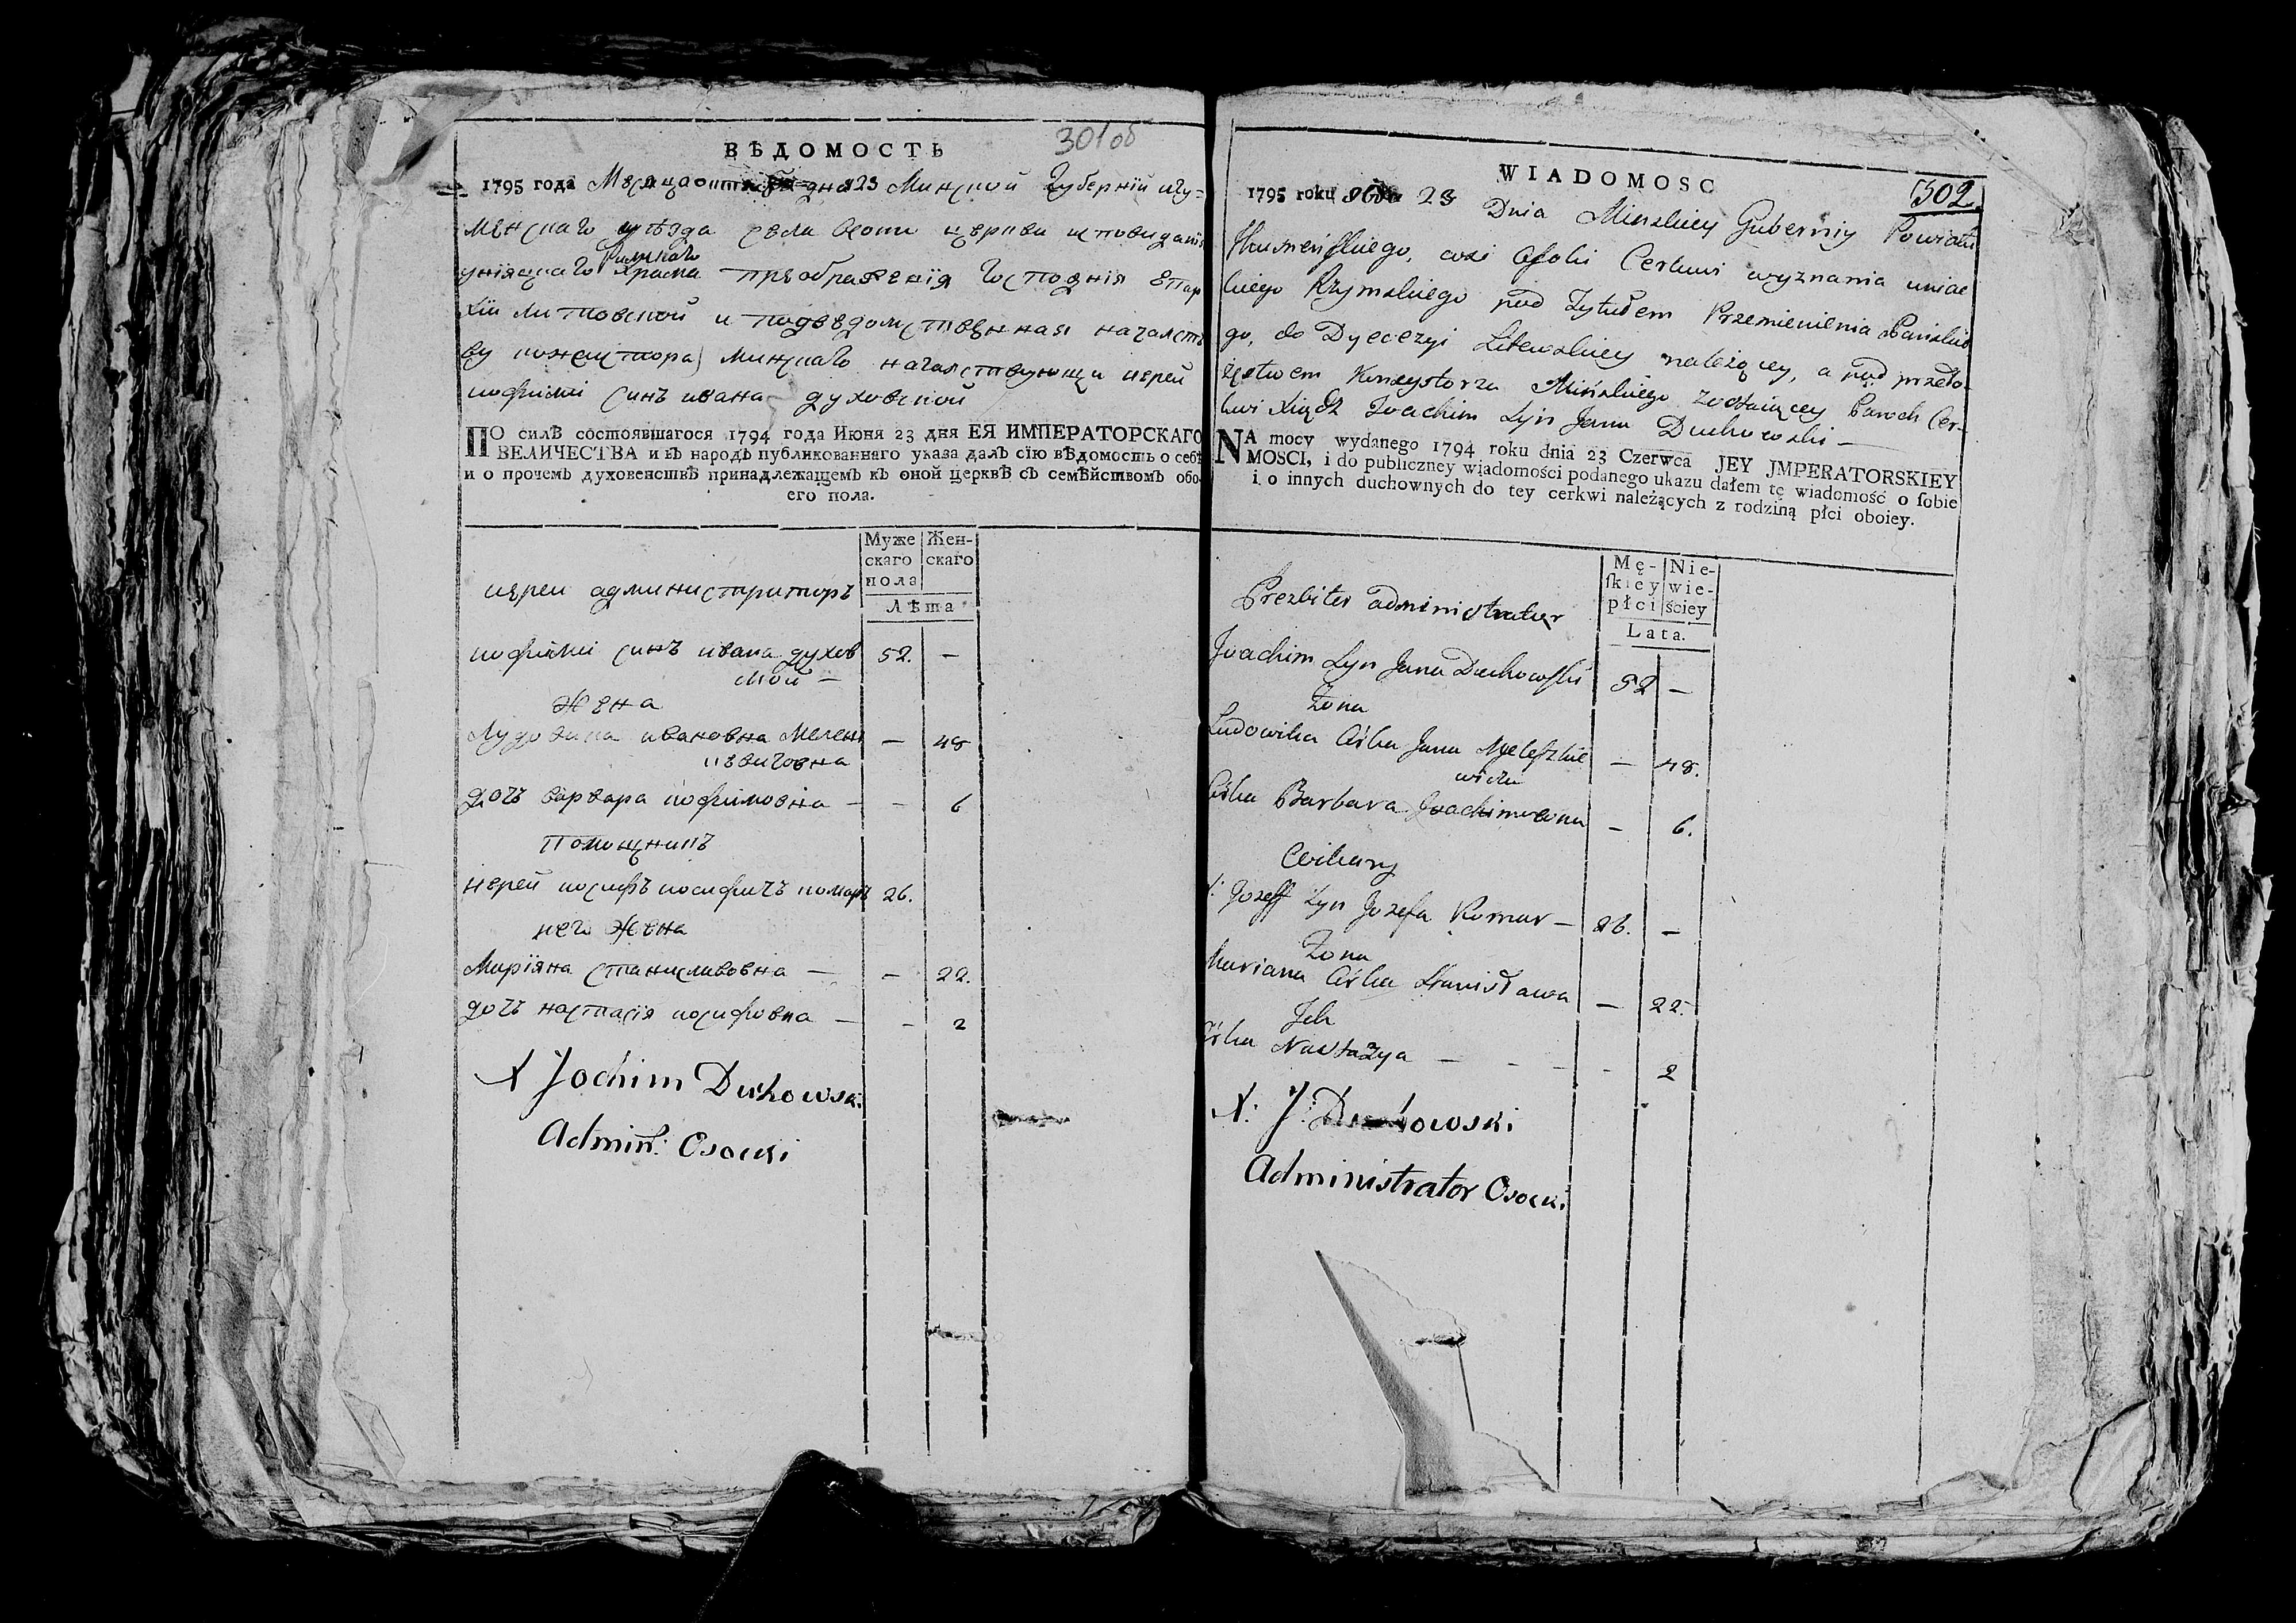 301 об
ВѢДОМОСТЬ
1795 года Мѣсяца дня 23 Минской Губернїи Игу-
менскаго уѣзда села Осоки церкви исповиданія
унїяцкаго Римскаго Храма преображенїя Господнїя епар
хїи литовской и подведомственная начальст
ву консистора Минскаго началствующи иерей
иофими синъ ивана духовской
ПО силѣ состоявшагося 1794 года Июня 23 дня ЕЯ ИМПЕРАТОРСКАГО
ВЕЛИЧЕСТВА и въ народѣ публикованнаго указа далъ сїю вѣдомость о себѣ
и о прочемъ духовенствѣ принадлежащемъ къ оной церквѣ съ семѣйствомъ обо-
его пола.
Муже
скаго
пола
Жен-
скаго
Лѣта
иереи администраторъ
иофими синъ ивана духов 52. —
ской —
Жена
Лудовика ивановна Мелеш — 48
кевичовна
дочъ варвара иофимовна — — 6
Помощникъ
иерей иосифъ иосифичъ комаръ 26.
него Жена
Марїяна станиславовна — — 22.
дочъ настасїя иосифовна — — 2
X Jochim Duhowski
Admin: Osocki
502.
WIADOMOSC
1795 roku 23 Dnia Minskiey Guberniy Powiatu
Ihumeńskiego, wsi Osoki Cerkwi wyznania uniac
kiego Rzymskiego pod Tytułem Przemienienia Pańskie
go, do Dyecezyi Litewskiey należącey, a pod przeło-
żęstwem Konsystorza Mińskiego zostaiącey Paroch Cer-
kwi Xiądz Joachim Syn Jana Duchowski —
NA mocy wydanego 1794 roku dnia 23 Czerwca JEY JMPERATORSKIEY
MOSCI, i do publiczney wiadomości podanego ukazu dałem tę wiadomość o sobie
i o innych duchownych do tey cerkwi należących z rodziną płci oboiey.
Mę-
skiey
płci
Nie-
wie-
ściey
Lata.
Prezbiter administrator
Joachim Syn Jana Duchowski 52 —
Żona
Ludowika Córka Jana Meleszkie — 48.
wicza
Córka Barbara Joachimowna — 6.
Wikary
X: Jozeff Syn Jozefa Komar — 26. —
Żona
Mariana Córka Stanisława — 22.
Ich
Córka Nastazya — — — — 2
X: J: Duchowski
Administrator Osocki